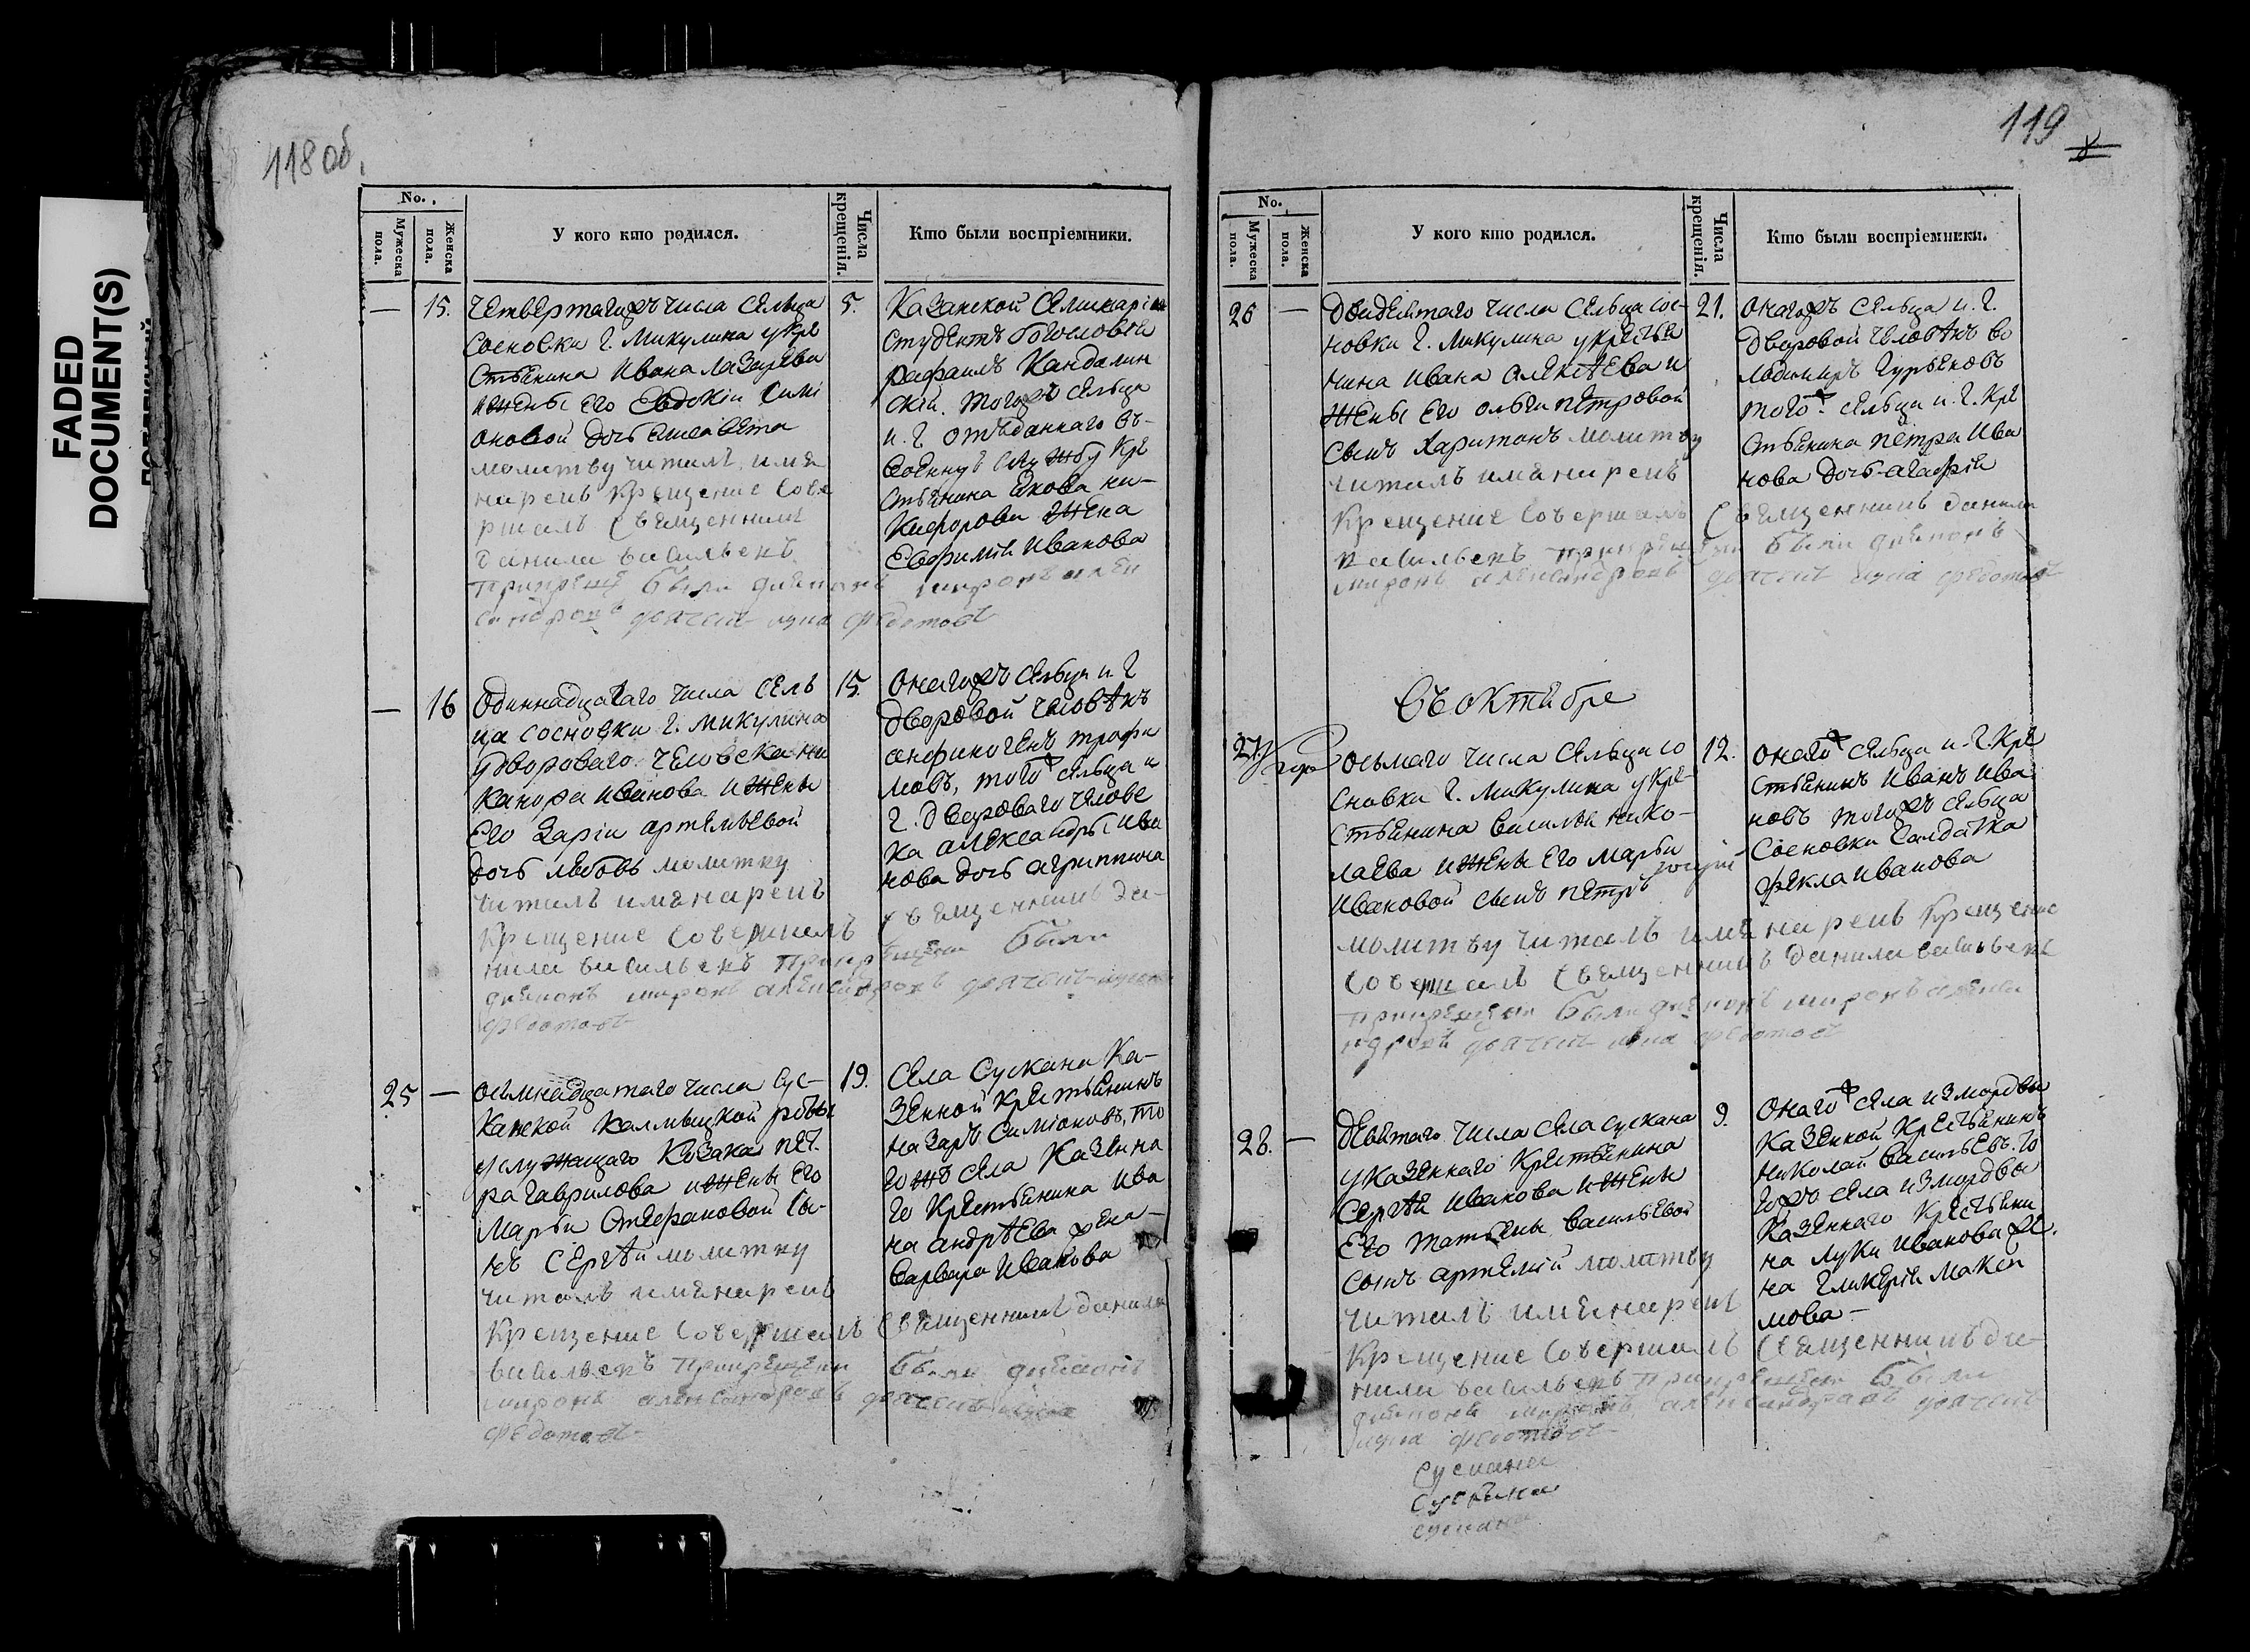 FADED
DOCUMENT(S)
118 об.
No.
Мужеска пола.
Женска пола.
У кого кто родился.
Числа крещенія.
Кто были воспріемники.
— 15. четвертагожъ числа сельца
Сосновки г. Микулина укре
стьянина Ивана Лазарева
ижены его Евдокіи Симі
оновой дочь Елисавета
молитву читалъ имя
нарекъ крещение Сове
ршалъ Священникъ
данила васильевъ
при крещ были диаконъ миронъ алек
сандровъ дьячекъ федотовъ
5. Казанской Семинаріи
студентъ богословіи
рафаилъ Кандалин
скій. тогожъ сельца
и. г. отъданнаго въ-
военную службу кре
стьянина Якова ни-
кифорова жена
Евфимія Иванова
— 16 Одиннадцатаго числа Сель
ца сосновки г. микулина
удвороваго человека ни
канора иванова ижены
Его Даріи артемьевой
дочь любовь молитву
читалъ имя нарекъ
Крещение Совершалъ священникъ да-
нила васильевъ при крещении были
диаконъ миронъ александровъ дьячекъ
федотовъ
15. Онагожъ сельца и. г
дворовой человѣкъ
анфиногенъ трофи
мовъ, тогоже сельца и
г. двороваго челове
ка александра ива
нова дочь агриппина
25 — Осьмнадцатаго числа Сус-
канской калмыцкой роты
услужащаго козака пет.
ра гаврилова ижены его
марьи Стефановой Сы-
нъ Сергѣй молитву
читалъ имя нарекъ
Крещение Совершалъ Священникъ данила
васильевъ при крещении были диаконъ
миронъ александровъ дьячекъ
федотовъ
19. Села Сускана Ка-
зенной крестьянинъ
назаръ Симіоновъ, то
гожъ села казенна
го крестьянина Ива
на андрѣева жена-
варвара Иванова
119
No.
Мужеска пола.
Женска пола.
У кого кто родился.
Числа крещенія.
Кто были воспріемники.
26 — двадцатаго числа Сельца Сос-
новки г. Микулина укрестья
нина Ивана алексѣева и
жены его ольги петровой
сынъ харитонъ молитву
читалъ имя нарекъ
Крещение Совершалъ Священникъ данила
васильевъ при крещении были диаконъ
миронъ александровъ дьячекъ федотовъ
21. онагожъ сельца и. г.
дворовой человѣкъ во
лодимиръ гурьяновъ
тогоже сельца и. г. кре
стьянина петра ива
нова дочь агафія
Въ октябре
27 осьмаго числа Сельца со
сновки г. микулина укре-
стьянина василья нико-
лаева ижены его марьи
ивановой сынъ петръ
молитву читалъ имя нарекъ крещение
Совершалъ Священникъ данила васильевъ
при крещении были диаконъ миронъ алекса
ндровъ дьячекъ федотовъ
12. онагоже сельца и. г. кре
стьянинъ иванъ ива
новъ тогожъ сельца
сосновки солдатка
фекла иванова
28. — девятаго числа села сускана
указеннаго крестьянина
Сергѣя иванова ижены
его татьяны васильевой
сынъ артемій молитву
читалъ имя нарекъ
Крещение Совершалъ Священникъ да-
нила васильевъ при крещении были
диаконъ миронъ александровъ дьячекъ
федотовъ
9. Онагоже села измордвы
казенной крестьянинъ
николай васильевъ. то
гожъ села измордвы
казеннаго крестьяни
на луки иванова же.
на гликерія макси
мова—
Сускана
сускана